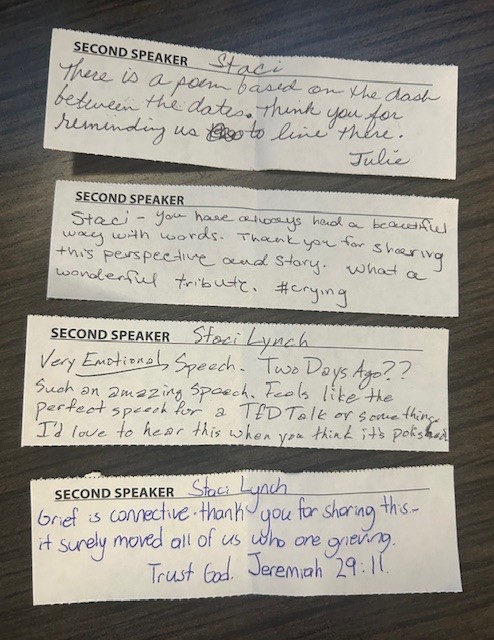 SECOND SPEAKER Staci
There is a poem based on the dash
between the dates. Think you for
reminding us to live there.
Julie
SECOND SPEAKER
Staci - you have always had a beautiful
way with words. Thank you for sharing
this perspective and story. What a
wonderful tribute. #crying
SECOND SPEAKER Staci Lynch
Very Emotional Speech. Two Days Ago??
Such an amazing speech. Feels like the
perfect speech for a TED Talk or something
I'd love to hear this when you think it's polished
SECOND SPEAKER Staci Lynch
Grief is connective. thank you for sharing this-
it surely moved all of us who are grieving.
Trust God. Jeremiah 29:11.